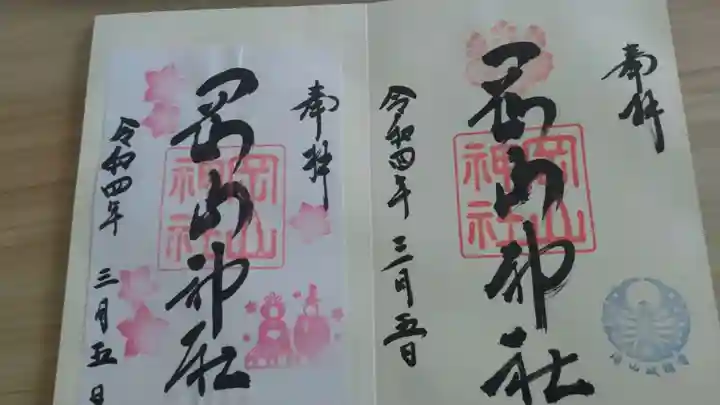 奉拝
岡山神社
岡山
神社
令和四年 三月五日
奉拝
岡山神社
岡山
神社
令和四年 三月五日